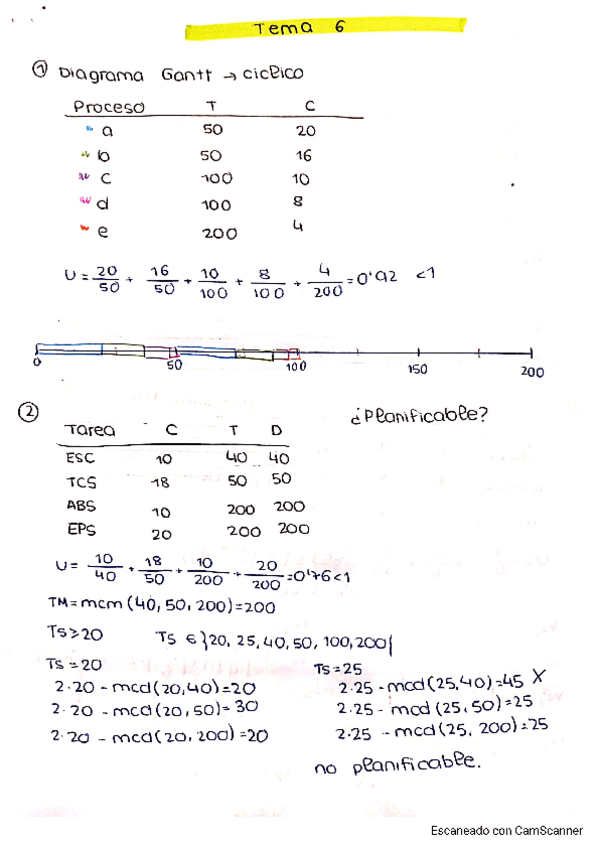 Tema 6
① Diagrama Gantt → cíclico
Proceso T C
a 50 20
b 50 16
c 100 10
d 100 8
e 200 4
U = 20/50 + 16/50 + 10/100 + 8/100 + 4/200 = 0'92 < 1
0 50 100 150 200
② ¿Planificable?
Tarea C T D
ESC 10 40 40
TCS 18 50 50
ABS 10 200 200
EPS 20 200 200
U = 10/40 + 18/50 + 10/200 + 20/200 = 0'76 < 1
TM = mcm (40, 50, 200) = 200
Ts ≥ 20 Ts ∈ }20, 25, 40, 50, 100, 200{
Ts = 20 Ts = 25
2·20 - mcd(20,40) = 20 2·25 - mcd(25,40) = 45 X
2·20 - mcd(20,50) = 30 2·25 - mcd(25,50) = 25
2·20 - mcd(20,200) = 20 2·25 - mcd(25,200) = 25
no planificable.
Escaneado con CamScanner